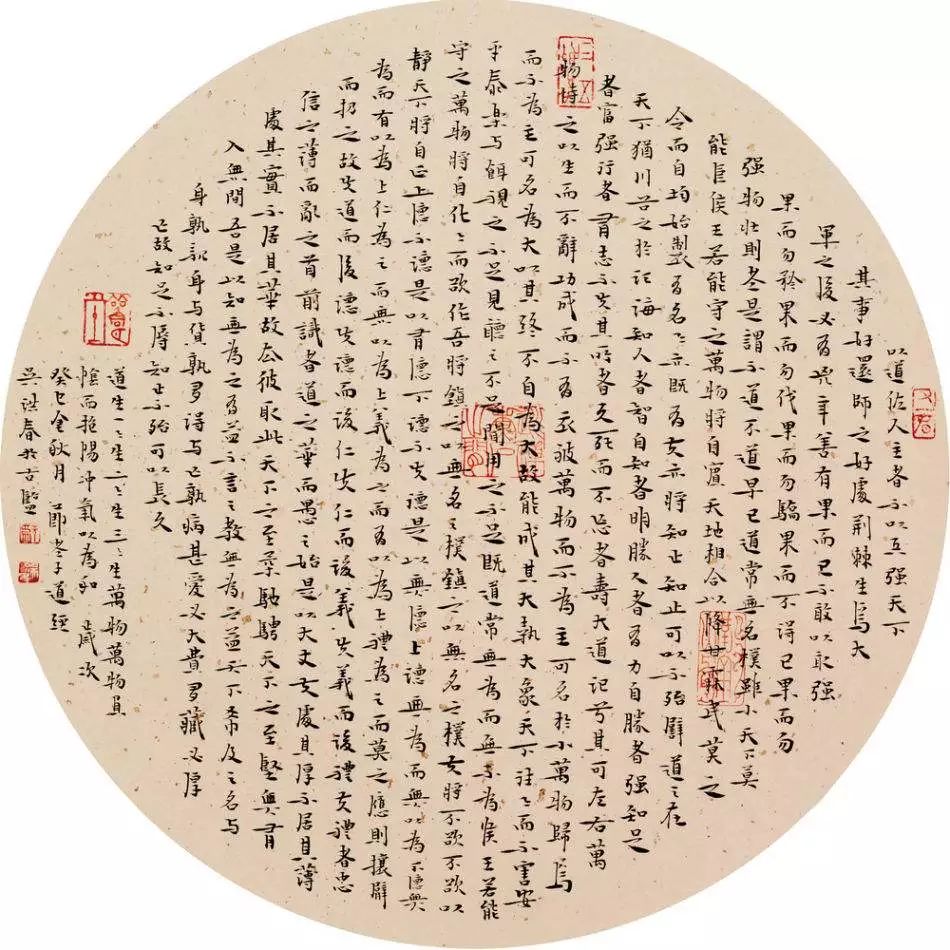 以道佐人主者不以兵强天下
其事好還師之好處荆棘生焉大
軍之後必有凶年善有果而已不敢以取强
果而勿矜果而勿伐果而勿驕果而不得已果而勿
强物壯則老是謂不道不道早已道常無名樸雖小天下莫
能臣侯王若能守之萬物將自賓天地相合以降甘霖民莫之
令而自均始製有名名亦既有夫亦將知止知止可以不殆譬道之在
天下猶川谷之於江海知人者智自知者明勝人者有力自勝者强知足
者富强行者有志不失其所者久死而不忘者壽大道氾兮其可左右萬
物恃之以生而不辭功成而不有衣被萬物而不為主可名於小萬物歸焉
而不為主可名為大以其終不自為大故能成其大執大象天下往々而不害安
平泰樂与餌視之不足見聽之不足聞用之不足既道常無為而無不為侯王若能
守之萬物將自化々而欲作吾將鎮之以無名之樸鎮之以無名之樸夫將不欲不欲以
靜天下將自正上德不德是以有德下德不失德是以無德上德無為而無以為下德無
為而有以為上仁為之而無以為上義為之而有以為上禮為之而莫之應則攘臂
而扔之故失道而後德失德而後仁失仁而後義失義而後禮夫禮者忠
信之薄而亂之首前識者道之華而愚之始是以大丈夫處其厚不居其薄
處其實不居其華故去彼取此天下之至柔馳騁天下之至堅無有
入無間吾是以知無為之有益不言之教無為之益天下希及之名与
身孰親身与貨孰多得与亡孰病甚愛必大費多藏必厚
亡故知足不辱知止不殆可以長久
道生一々生二々生三々生萬物萬物負
陰而抱陽沖氣以為和 歲次
癸巳金秋月 節老子道經
春於古